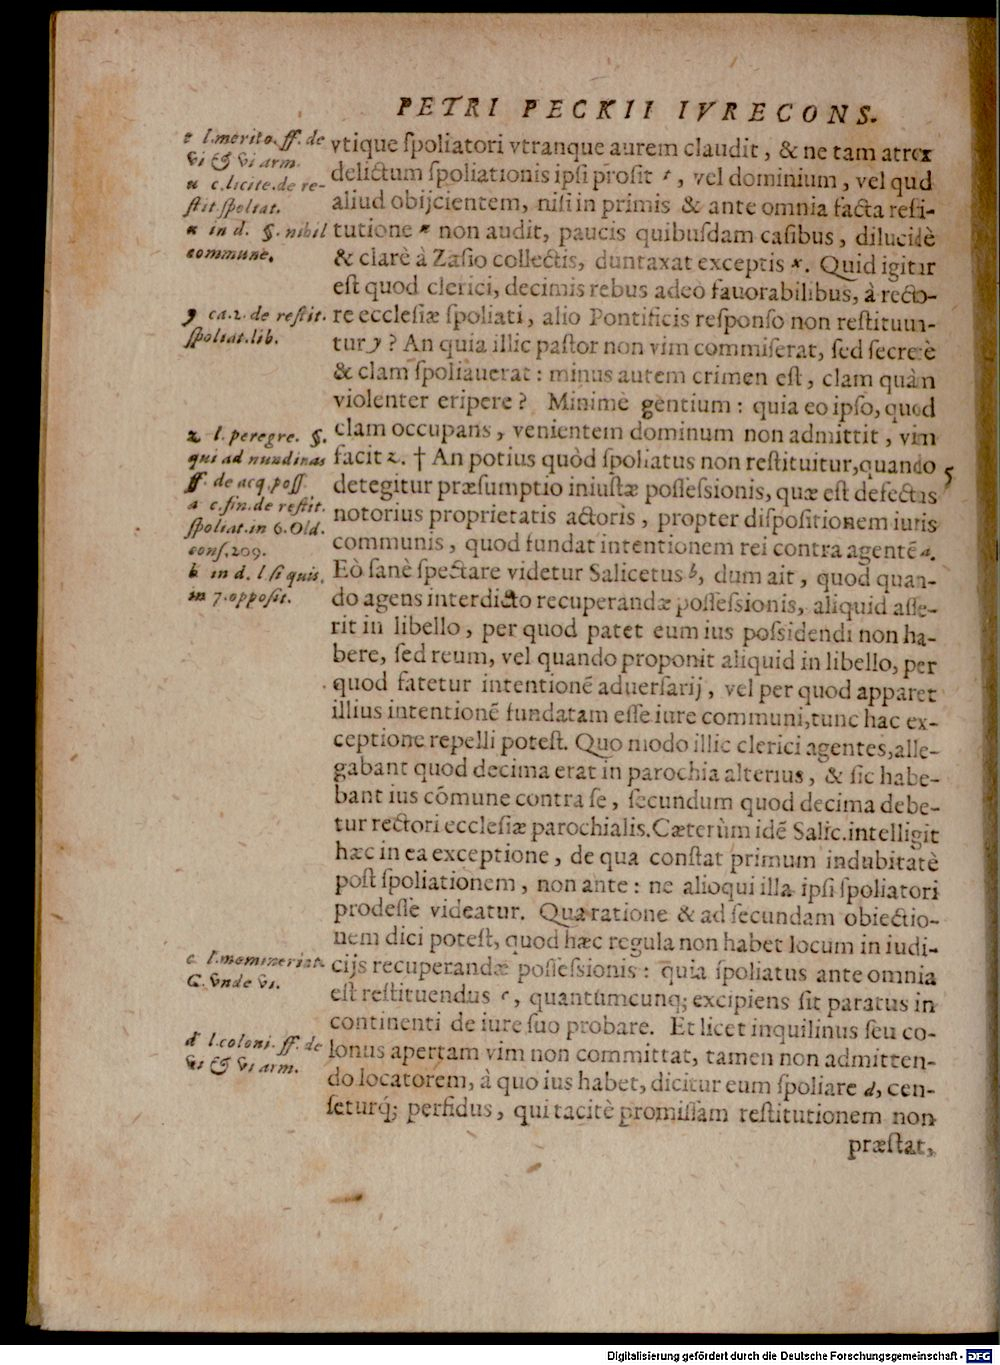 PETRI PECKII IVRECONS.
vtique spoliatori vtranque aurem claudit, & ne tam atrox
delictum spoliationis ipsi prosit t, vel dominium, vel quid
aliud obijcientem, nisi in primis & ante omnia facta resti-
tutione u non audit, paucis quibusdam casibus, dilucidè
& clarè à Zasio collectis, duntaxat exceptis x. Quid igitur
est quod clerici, decimis rebus adeò fauorabilibus, à recto-
re ecclesiæ spoliati, alio Pontificis responso non restituun-
tur y? An quia illic pastor non vim commiserat, sed secretè
& clam spoliauerat: minus autem crimen est, clam quàm
violenter eripere? Minimè gentium: quia eo ipso, quod
clam occupans, venientem dominum non admittit, vim
facit z. † An potius quòd spoliatus non restituitur, quando
detegitur præsumptio iniustæ possessionis, quæ est defectus
notorius proprietatis actoris, propter dispositionem iuris
communis, quod fundat intentionem rei contra agentē a.
Eò sanè spectare videtur Salicetus b, dum ait, quod quan-
do agens interdicto recuperandæ possessionis, aliquid asse-
rit in libello, per quod patet eum ius possidendi non ha-
bere, sed reum, vel quando proponit aliquid in libello, per
quod fatetur intentionē aduersarij, vel per quod apparet
illius intentionē fundatam esse iure communi, tunc hac ex-
ceptione repelli potest. Quo modo illic clerici agentes, alle-
gabant quod decima erat in parochia alterius, & sic habe-
bant ius cōmune contra se, secundum quod decima debe-
tur rectori ecclesiæ parochialis. Cæterùm idē Salic. intelligit
hæc in ea exceptione, de qua constat primum indubitatè
post spoliationem, non ante: ne alioqui illa ipsi spoliatori
prodesse videatur. Qua ratione & ad secundam obiectio-
nem dici potest, quod hæc regula non habet locum in iudi-
cijs recuperandæ possessionis: quia spoliatus ante omnia
est restituendus c, quantumcunq; excipiens sit paratus in
continenti de iure suo probare. Et licet inquilinus seu co-
lonus apertam vim non committat, tamen non admitten-
do locatorem, à quo ius habet, dicitur eum spoliare d, cen-
seturq́; perfidus, qui tacitè promissam restitutionem non
præstat,
t l. merito. ff. de
vi & vi arm.
u c. licite. de re-
stit. spoliat.
x in d. §. nihil
commune.
y ca. 2. de restit.
spoliat. lib.
z l. peregre. §.
qui ad nundinas
ff. de acq. poss.
a c. fin. de restit.
spoliat. in 6. Old.
cons. 209.
b in d. l si quis.
in 7. opposit.
5
c l. meminerint.
C. vnde vi.
d l. coloni. ff. de
vi & vi arm.
Digitalisierung gefördert durch die Deutsche Forschungsgemeinschaft - DFG